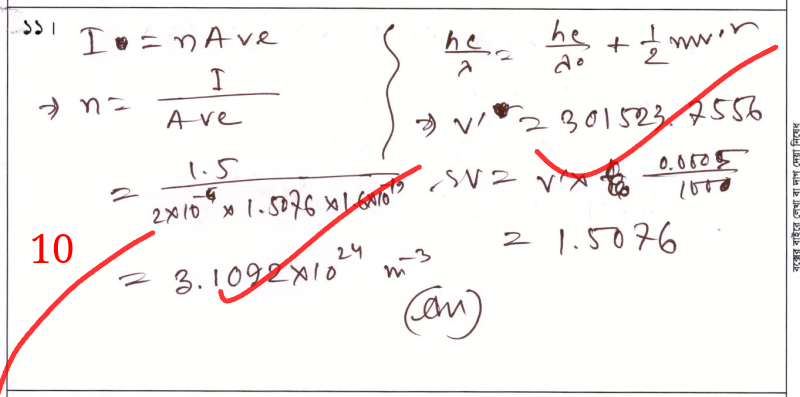 ১১।
I = nAve
⇒ n = I / Ave
= 1.5 / 2×10⁻⁶ × 1.5076 × 1.6×10⁻¹⁹
= 3.1092×10²⁴ m⁻³
(Ans)
hc/λ = hc/λ₀ + ½mv'²
⇒ v' = 301523.7556
∴ v = v' × 0.0005/1000
= 1.5076
10
বক্সের বাইরে লেখা বা দাগ দেয়া নিষেধ